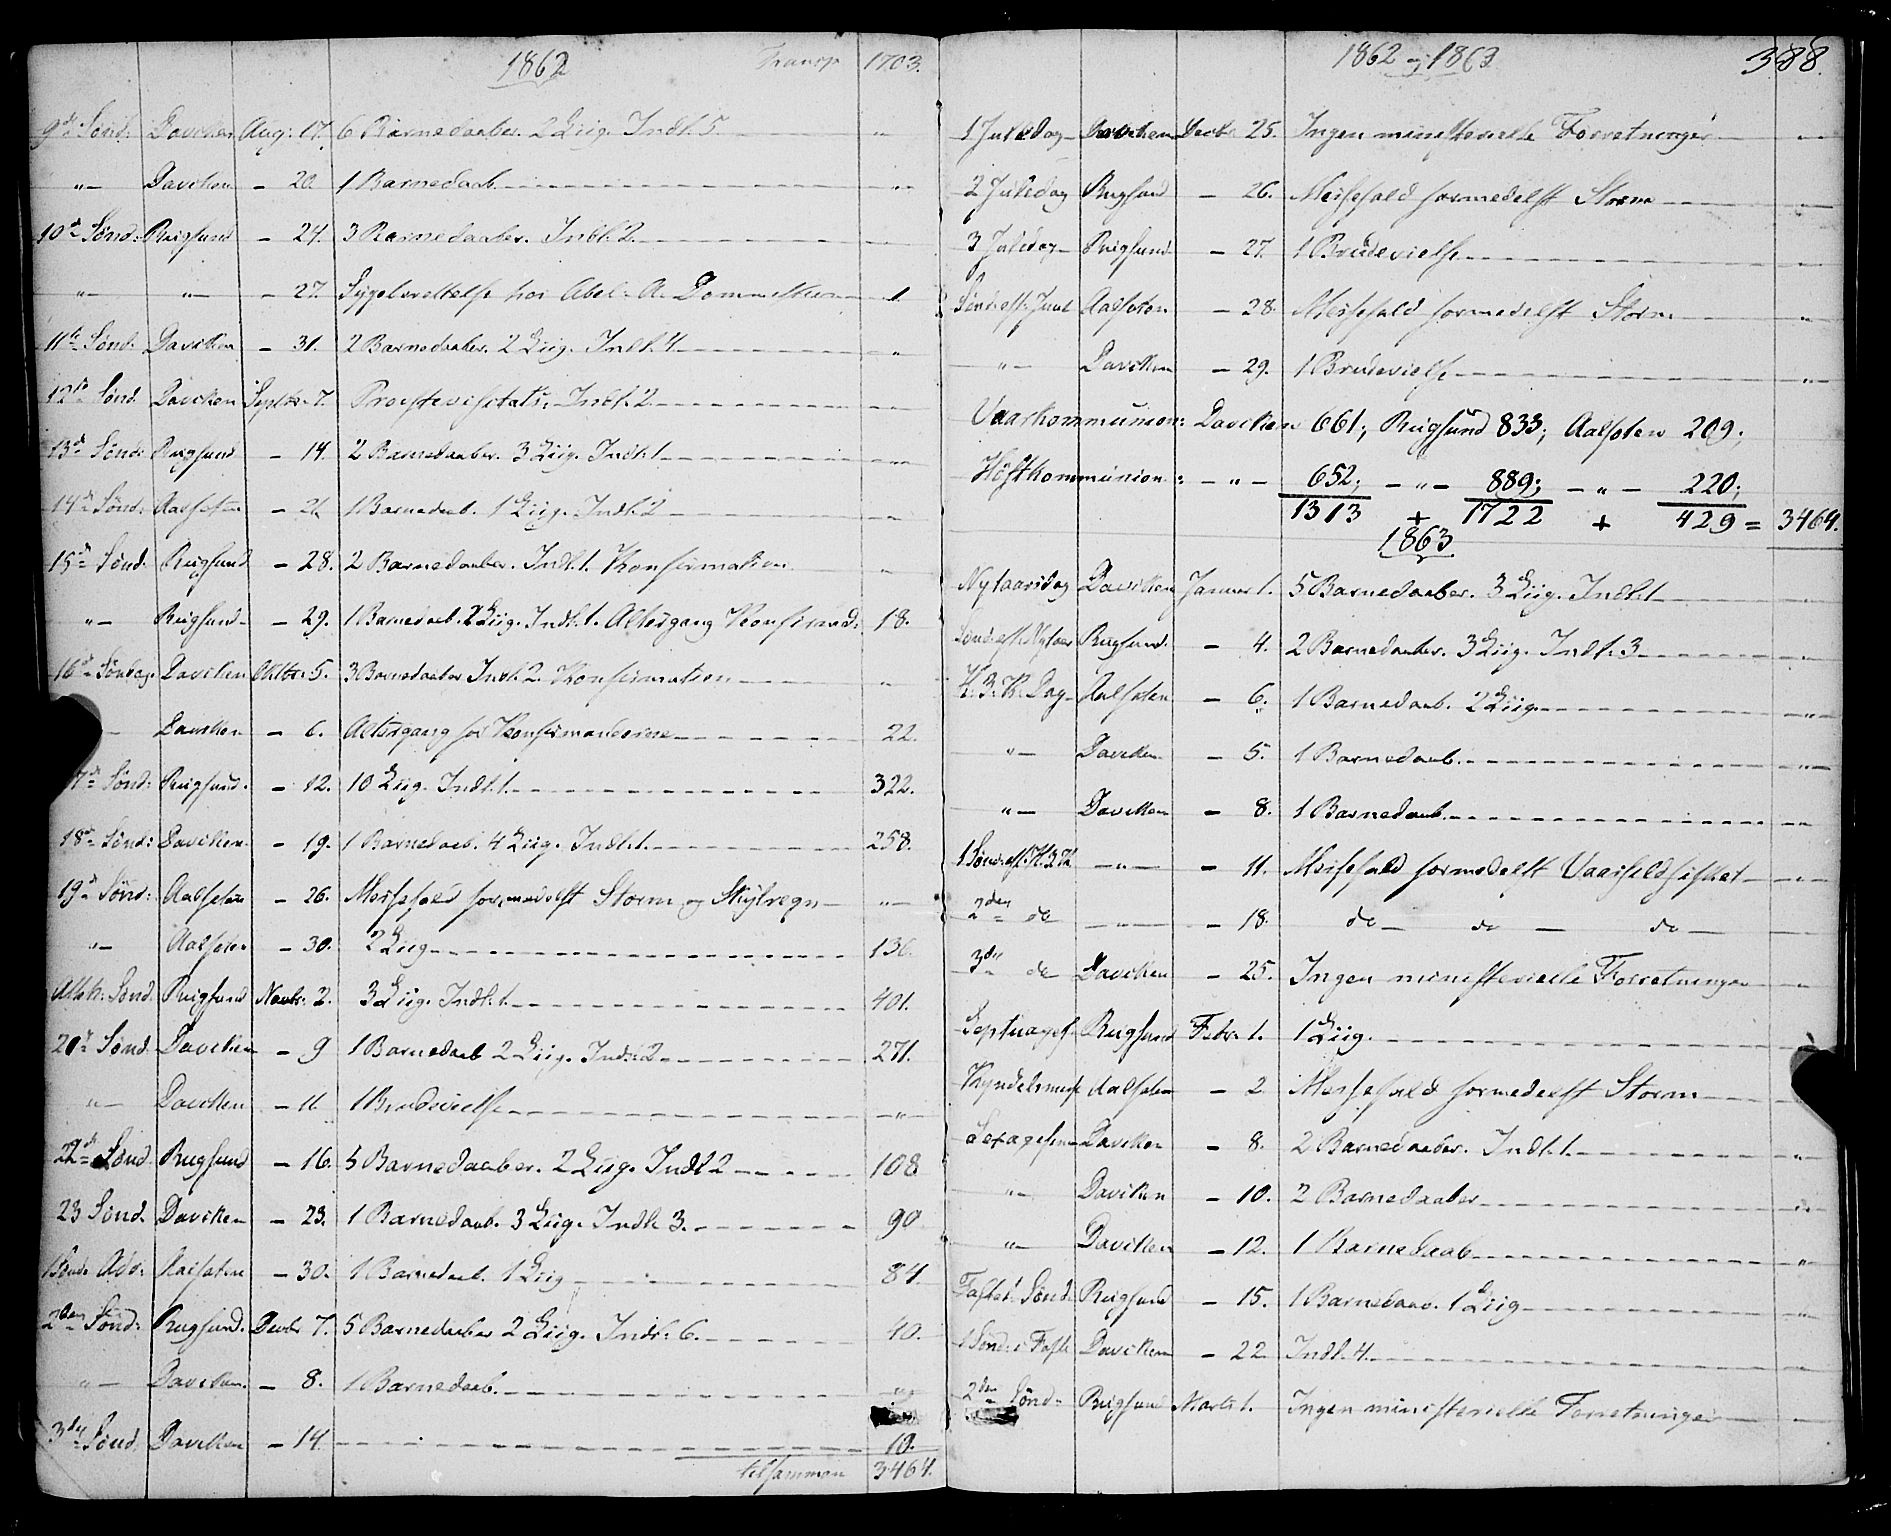 1862 Transp 1703.
9de Sønd: Daviken Aug: 17. 6 Barnedaaber. 2 Liig. Indl. 5 "
"– Daviken – 20. 1 Barnedaab. "
10de Sønd: Rugsund – 24. 3 Barnedaaber. Indl. 2.
"– "– – 27. hos Abel A. 1.
11te Sønd: Daviken – 31. 2 Barnedaaber. 2 Liig. Indl. 4. "
12te Sønd. Daviken Septbr. 7. Provstevisitats. Indl. 2.
13de Sønd: Rugsund – 14. 2 Barnedaaber. 3 Liig. Indl. 1
14de Sønd: Aalfoten – 21. 1 Barnedaab. 1 Liig. Indl. 2
15de Sønd. Rugsund – 28. 2 Barnedaaber. Indl. 1. Konfirmation "
"– Rugsund – 29. 1 Barnedaab. 2 Liig. Indl. 1. Altergang Konfirmand: 18.
16de Søndag. Daviken Oktbr. 5. 3 Barnedaaber Indl. 2. Konfirmation "
– Daviken – 6. Altergang for Konfirmanderne 22.
17de Sønd: Rugsund. – 12. 10 Liig. Indl. 1. 322.
18de Sønd: Daviken. – 19. 1 Barnedaab. 4 Liig. Indl. 1. 258.
19de Sønd: Aalfoten – 26. Messefald formedelst Storm og Skylregn "
"– Aalfoten – 30. 2 Liig. 136.
Alleh: Sønd. Rugsund Novbr. 2. 3 Liig. Indl. 1. 401.
20de Sønd. Daviken – 9 1 Barnedaab 2 Liig. Indl. 2 271.
"– Daviken – 11. 1 Brudevielse "
22de Sønd. Rugsund – 16. 5 Barnedaaber. 2 Liig. Indl 2 108
23 Sønd. Daviken – 23. 1 Barnedaab. 3 Liig. Indl. 3. 90
1 Sønd. Adv: Aalfoten – 30. 1 Barnedaab. 1 Liig 84.
2den Sønd: Rugsund. Decbr 7. 5 Barnedaaber 2 Liig. Indl. 6. 40.
"– Daviken. – 8. 1 Barnedaab. "
3die Sønd. Daviken – 14. 10.
tilsammen 3464.
1862 og 1863 388.
1 Juledag Daviken Decbr. 25. Ingen ministerielle Forretninger "
2 Juledag Rugsund – 26. Messefald formedelst Storm "
3 Juledag Rugsund – 27. 1 Brudevielse "
Sønd. eft. Juul Aalfoten – 28. Messefald formedelst Storm "
"– Daviken – 29. 1 Brudevielse "
Vaarkommunion: Daviken 661; Rugsund 833; Aalfoten 209;
Høstkommunion: – " – 652; – " – 889; – " – 220;
1313 + 1722 + 429 = 3464.
1863.
Nytaarsdag Daviken Januar 1. 5 Barnedaaber. 3 Liig. Indl. 1
Sønd. eft. Nytaar Rugsund. – 4. 2 Barnedaaber. 3 Liig. Indl. 3 "
H. 3. K. Dag Aalfoten – 6. 1 Barnedaab. 2 Liig "
"– Daviken – 5. 1 Barnedaab. "
"– Daviken – 8. 1 Barnedaab. "
1 Sønd. eft. H. 3 K – " – – 11. Messefald formedelst "
2den do – " – – 18. do – do – do –
3die do Daviken – 25. Ingen ministerielle Forretninger "
Septuages. Rugsund Febr. 1. 1 Liig.
Kyndelmess Aalfoten – 2 Messefald formedelst Storm
Sexagesima Daviken – 8. 2 Barnedaaber. Indl. 1. "
"– Daviken – 10. 2 Barnedaaber "
"– Daviken – 12. 1 Barnedaab "
Fastel. Sønd. Rugsund – 15. 1 Barnedaab. 1 Liig "
1 Sønd. i Faste Daviken – 22 Indl. 4. "
2den Sønd. Rugsund Marts 1. Ingen ministerielle Forretninger "